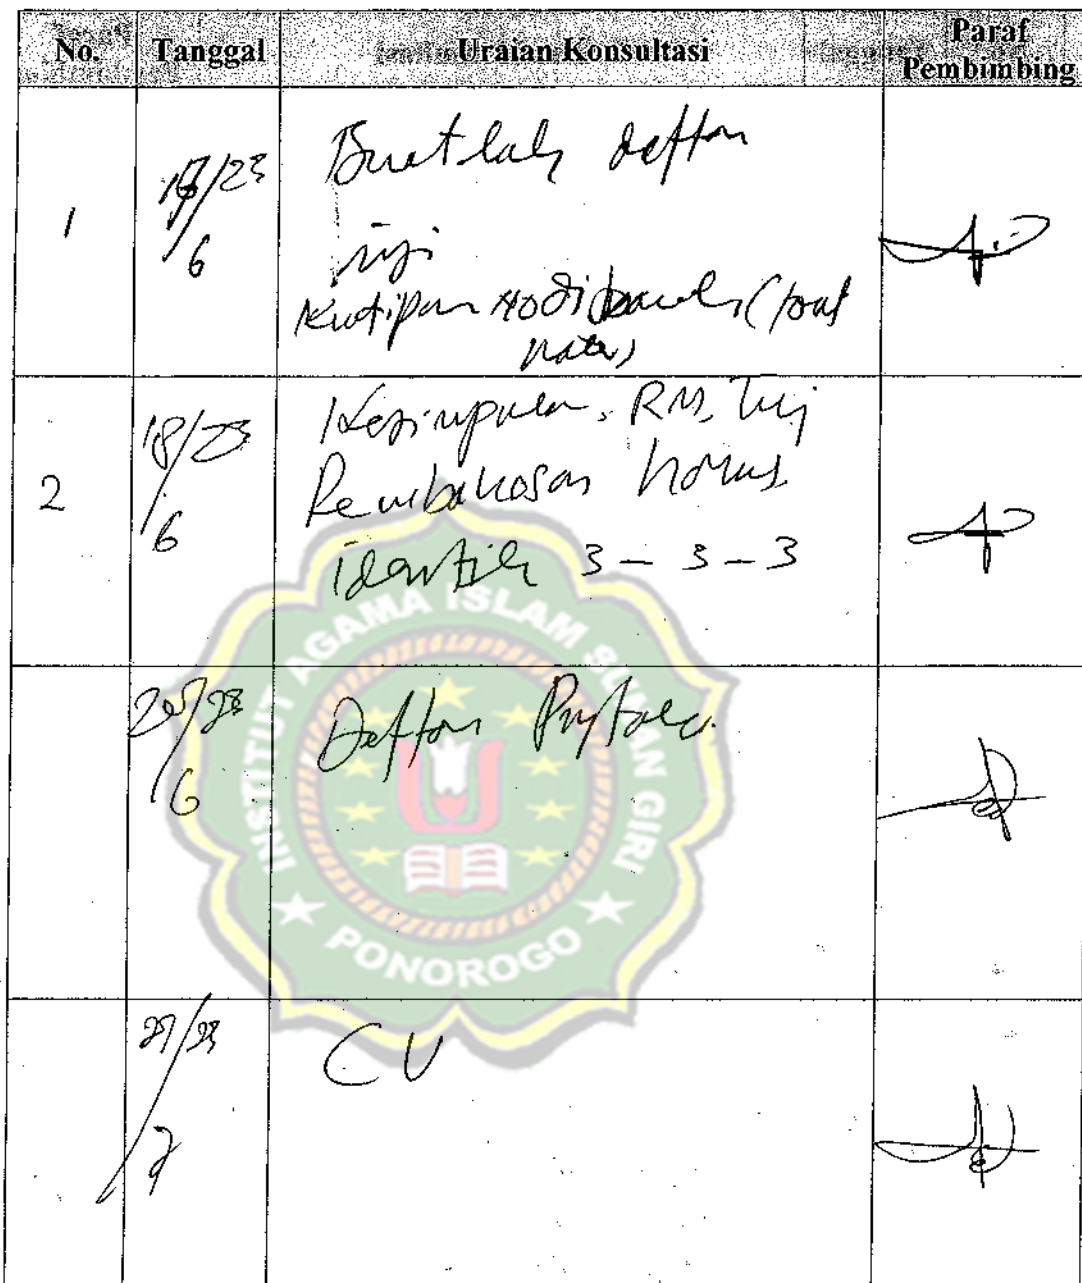 No. Tanggal Uraian Konsultasi Paraf Pembimbing
1 17/23 6 Buatlah daftar
isi
Kutipan
2 18/23 6 Kesimpulan, RM, Tuj
Pembahasan harus
identik 3 - 3 - 3
6 Daftar Pustaka.
CV
INSTITUT AGAMA ISLAM SUNAN GIRI
PONOROGO